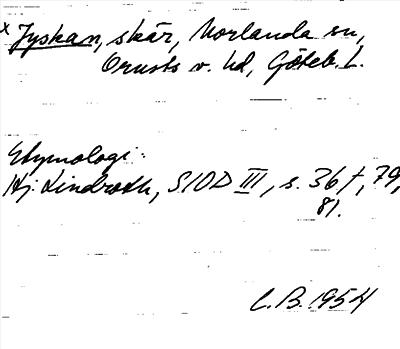 x Tyskan, skär, Morlanda sn,
Orusts v. hd, Göteb. L.
Etymologi:
Hj. Lindroth, SIOD III, s. 36 f, 79,
81.
C.B. 1954